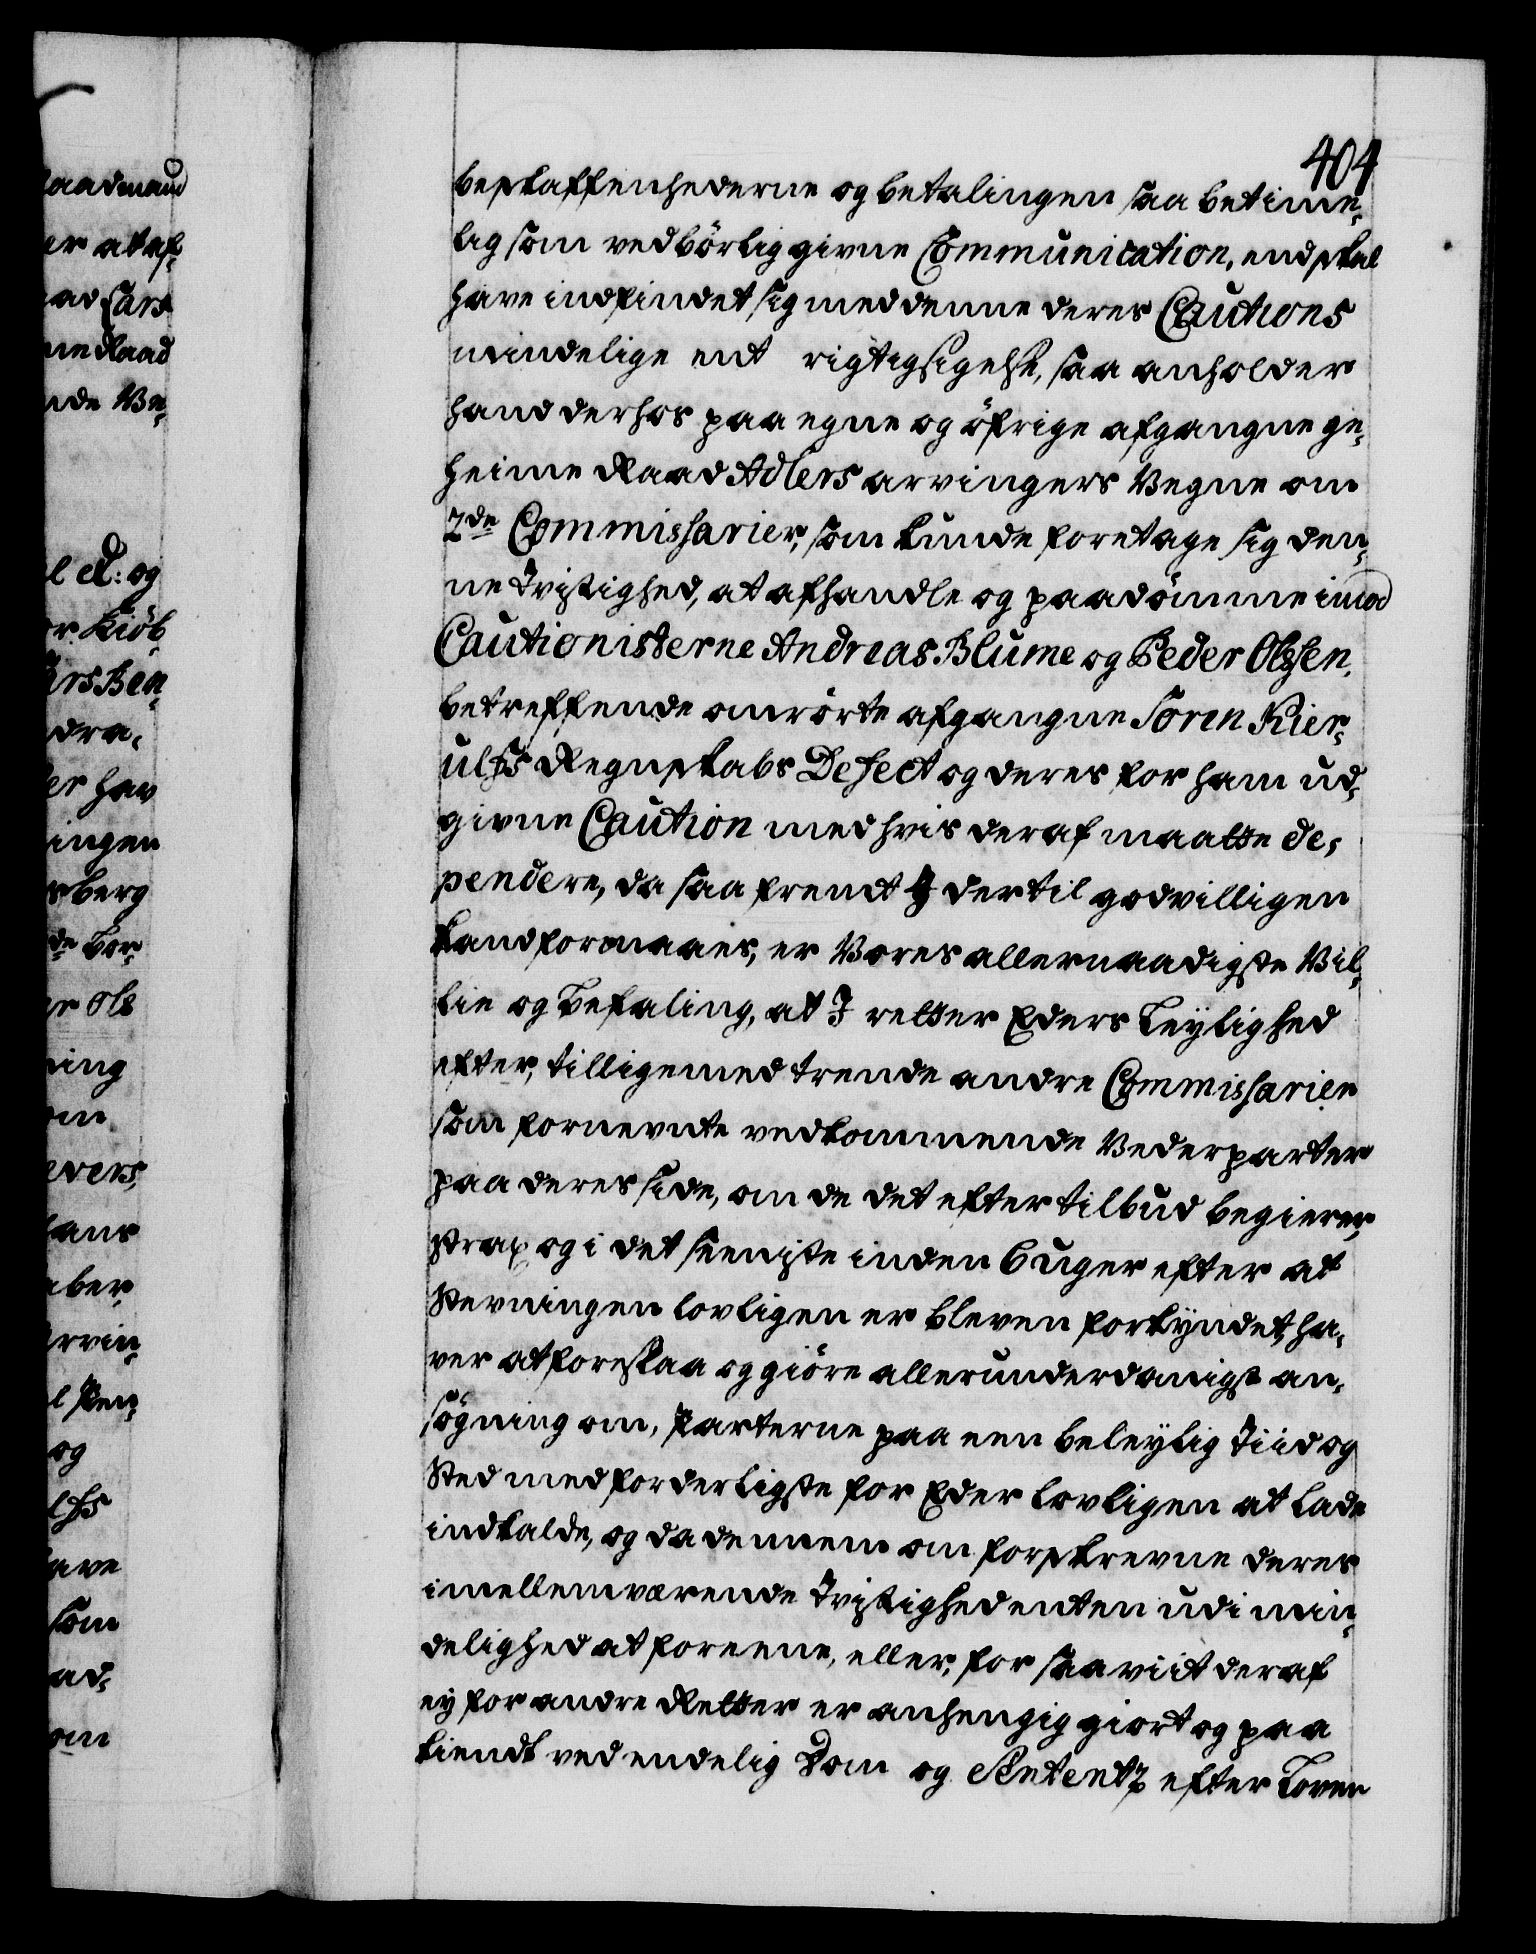 404
beskaffenhederne og betalingen saa betime-
lig som vedbörlig givne Communication, end skal
have indfindet sig med denne deres Cautions
mindelige ent rigtigsigelse, saa anholder
hand derhos paa egne og öfrige afgangne ge-
heime Raad Adlers arvingers Vegne om
2de Commissarier, som kunde foretage sig den-
ne Tvistighed, at afhandle og paadömme imod
Cautionisterne Andreas Blume og Peder Olesen,
betreffende omrörte afgangne Sören Kier-
ulfs Regnskabs Defect og deres for ham ud-
givne Caution med hvis deraf maatte de-
pendere, da saafremt I dertil godvilligen
kand formaaes, er Vores allernaadigste Vil-
lie og Befaling, at I retter Eders Leylighed
efter, tilligemed trende andre Commissarier
som fornevnte vedkommende Vederparter
paa deres side, om de det efter tilbud begierer,
strax og i det seeniste inden 6 uger efter at
Stevningen lovligen er bleven forkyndet, ha-
ver at foreslaa og giöre allerunderdanigst an-
sögning om, Parterne paa een beleylig Tiid og
Sted med forderligste for Eder lovligen at lade
indkalde, og da dennem om forskrevne deres
imellemværende Tvistighed enten udi min-
delighed at foreene, eller, for saa viit deraf
ey for andre Retter er anhengig giort og paa
kiendt ved endelig Dom og Sententz efter Loven